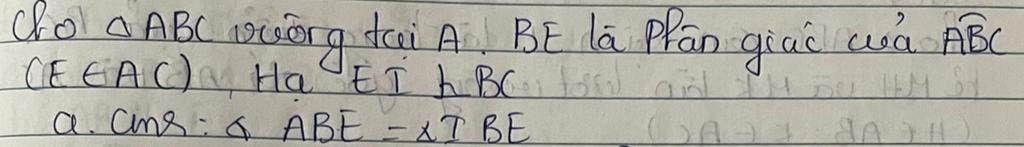 Cho △ ABC vuông tại A. BE là Phân giác của ABC
(E ∈ AC), Hạ EI ⊥ BC
a. Cm: △ ABE = △ IBE